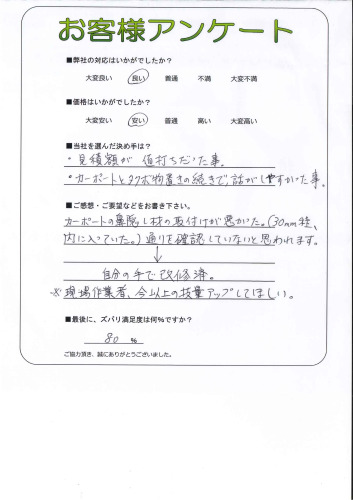 お客様アンケート
■弊社の対応はいかがでしたか？
大変良い 良い 普通 不満 大変不満
■価格はいかがでしたか？
大変安い 安い 普通 高い 大変高い
■当社を選んだ決め手は？
・見積額が 値打ちだった事。
・カーポートとタクボ物置きの続きで話がしやすかった事。
■ご感想・ご要望などをお書き下さい。
カーポートの鼻隠し材の取付けが悪かった。(30mm程、
内に入っていた。)通りを確認していないと思われます。
↓
自分の手で改修済。
※現場作業者、今以上の技量アップしてほしい。
■最後に、ズバリ満足度は何％ですか？
80 %
ご協力頂き、誠にありがとうございました。